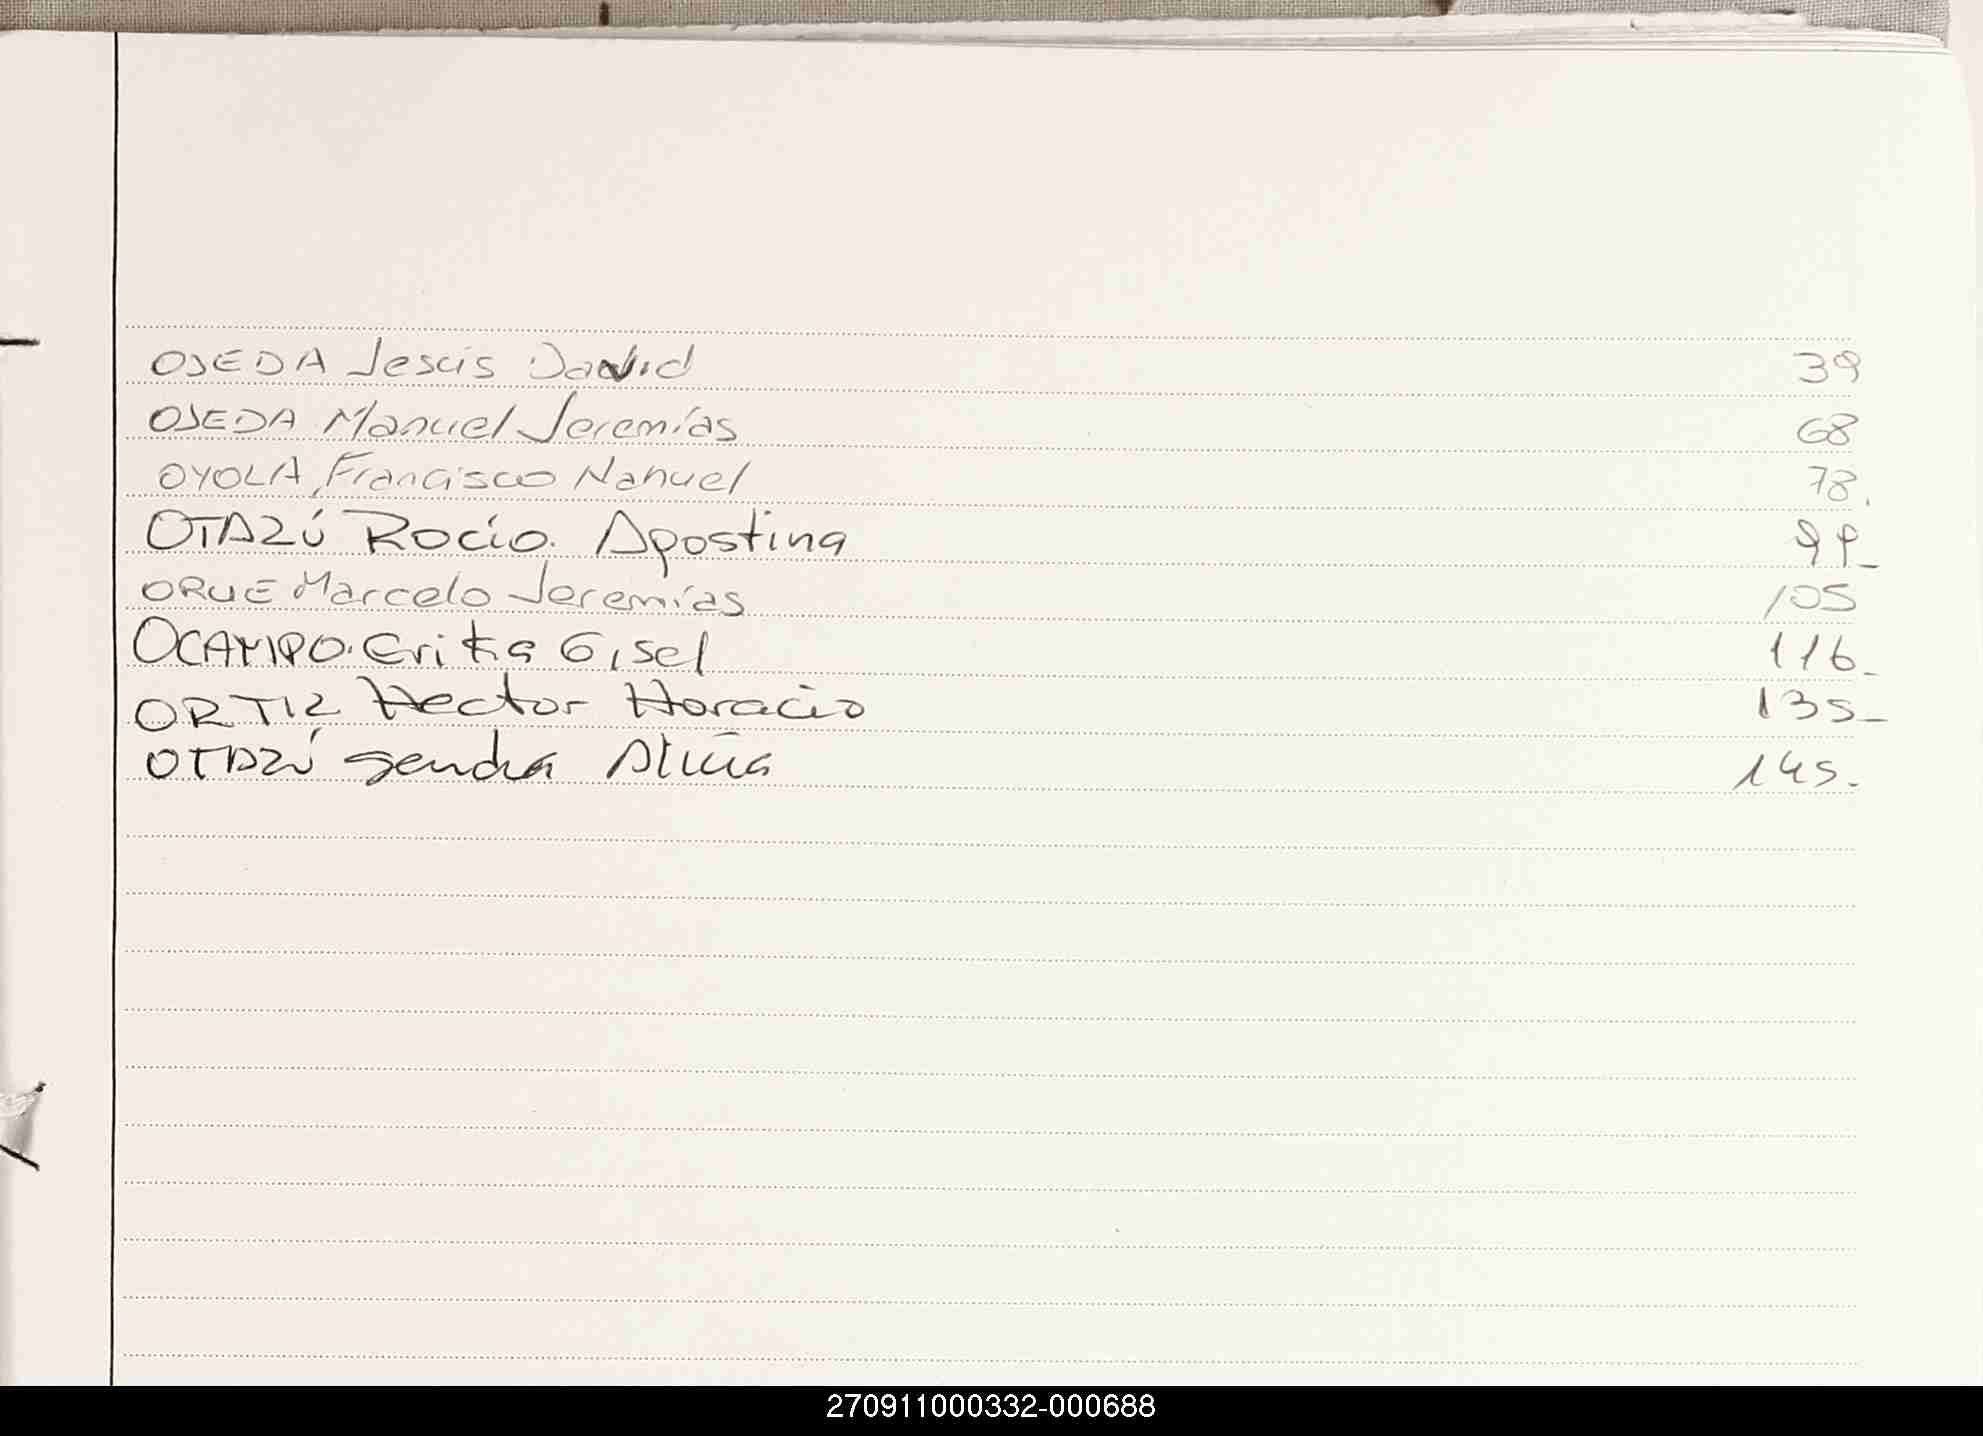 OJEDA Jesús David 39
OJEDA Manuel Jeremías 68
OYOLA, Francisco Nahuel 78.
OTAZÚ Rocío. Agostina 99_
ORUE Marcelo Jeremías 105
OCAMPO. Erika Gisel 116_
ORTIZ Hector Horacio 135_
OTAZÚ Sandra Alicia 145.
270911000332-000688